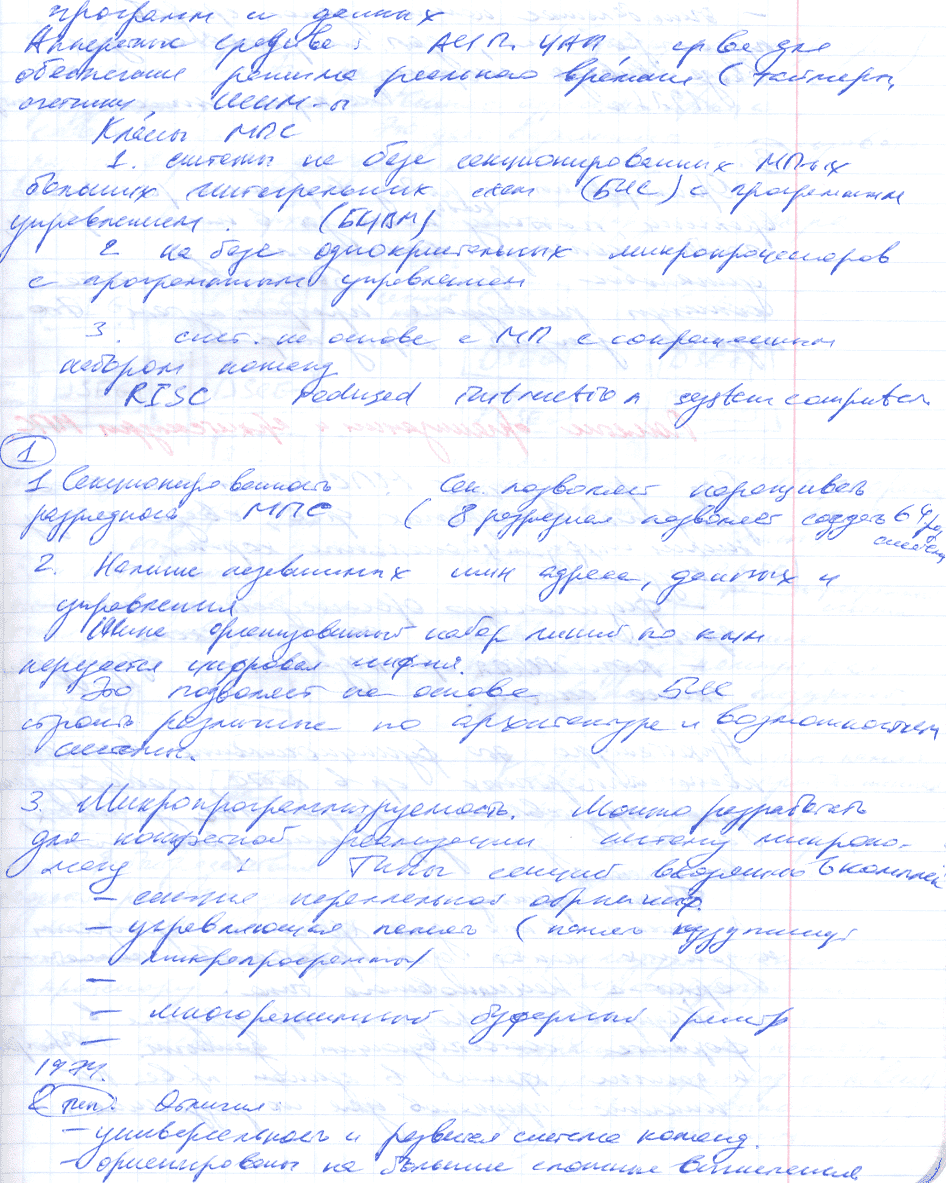 программ и данных
Аппаратные средства: АЦП. ЦАП ср-ва для
обеспечения режима реального времени (таймеры,
счетчики, ШИМ-ы
Классы МПС
1. системы на базе секционированных МП-ых
больших интегральных схем (БИС) с программным
управлением. (БЦВМ)
2 на базе однокристальных микропроцессоров
с программным управлением
3. сист. на основе с МП с сокращенным
набором команд
RISC Redused instruction system computer
1
1 Секционированность Сек. позволяет наращивать
разрядность МПС (8 разрядная позволяет создать 64/раз
систему
2. Наличие независимых шин адреса, данных и
управления
Шина организованный набор линий по кым
передается цифровая инфия.
Это позволяет на основе БИС
строить различные по архитектуре и возможностям
системы.
3. Микропрограммируемость. Можно разработать
для конкретной реализации систему микроко-
манд 1 Типы секций входящие в комплект
– секция параллельной обработки.
– управляющая память (память
микропрограммы
–
– многорежимный буферный регистр
–
1974.
2 тип: Отличия:
– универсальность и развитая система команд.
– ориентированы на большие сложные вычисления